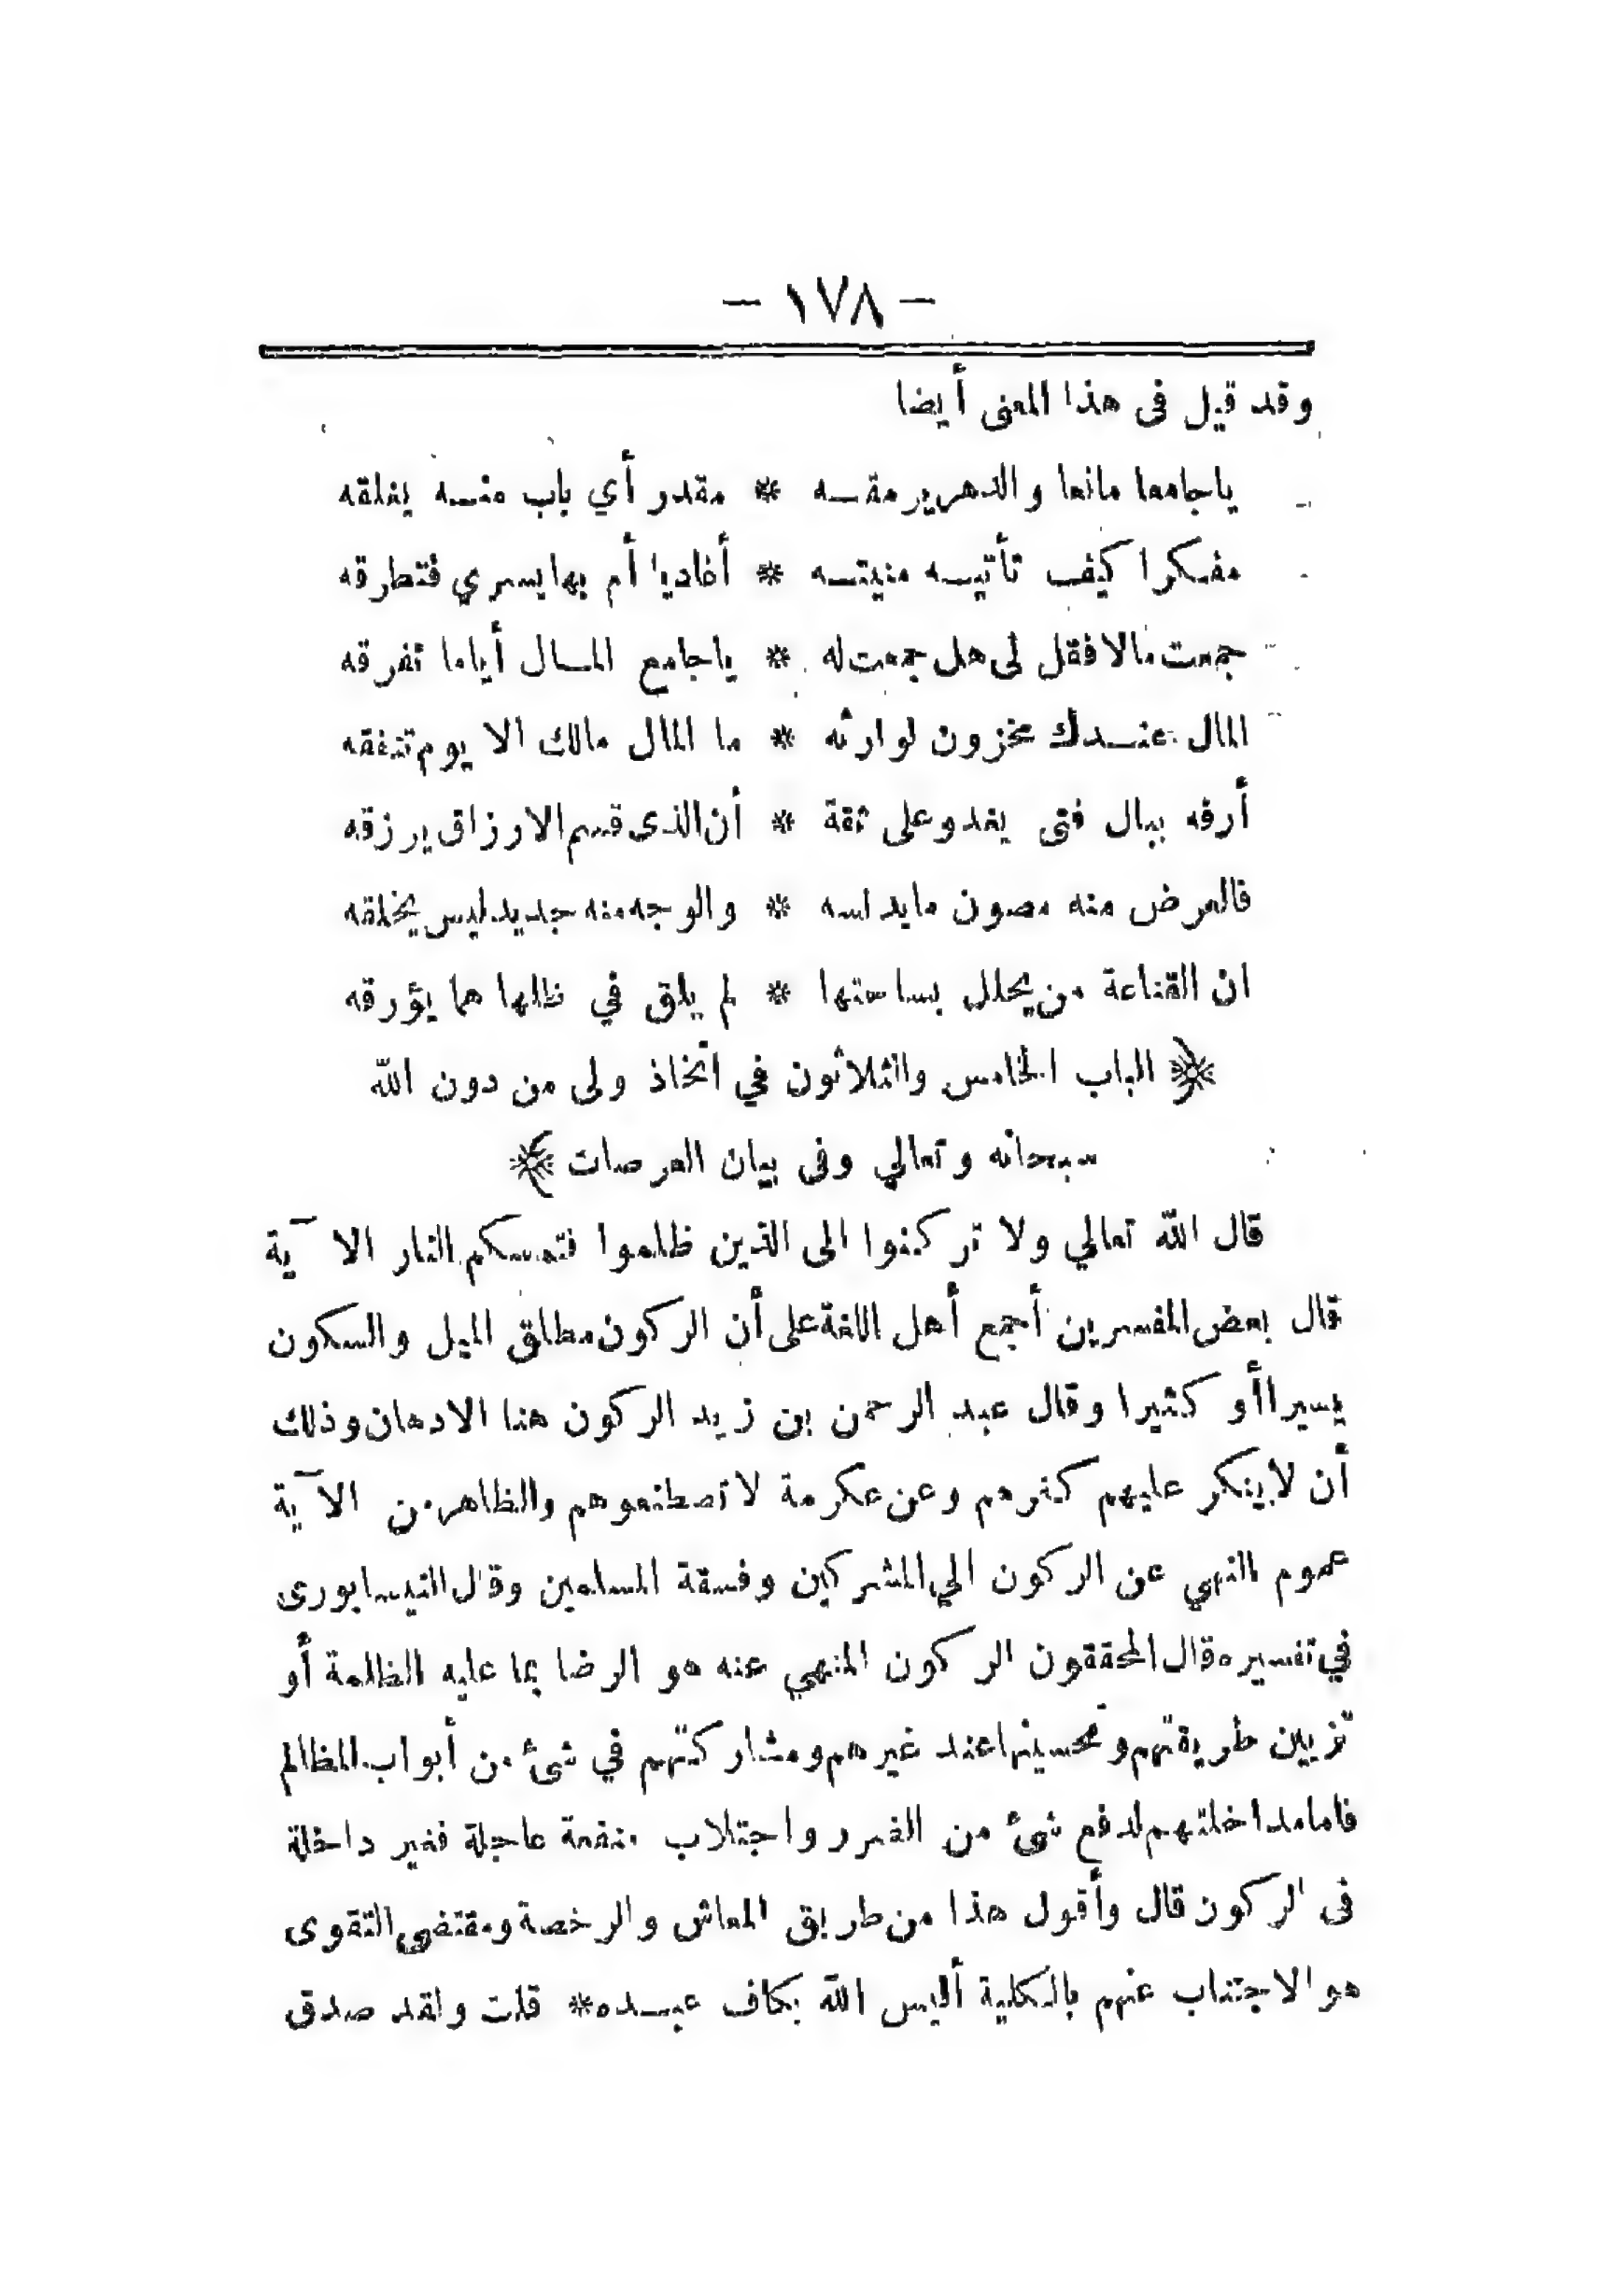 — ١٧٨ —
وقد قيل فى هذا المعنى أيضا
ياجامعا مانعا والدهر يرمقه * مقدر أي باب منه يغلقه
مفكرا كيف تأتيه منيته * أغاديا أم بها يسري فتطرقه
جمعت مالا فقل لى هل جمعت له * ياجامع المال أياما تفرقه
المال عندك مخزون لوارثه * ما المال مالك الا يوم تنفقه
أرفه ببال فتى يغدو على ثقة * أن الذى قسم الارزاق يرزقه
فالعرض منه مصون مايدنسه * والوجه منه جديد ليس يخلقه
ان القناعة من يحلل بساحتها * لم يلق في ظلها هما يؤرقه
﴿ الباب الخامس والثلاثون في اتخاذ ولى من دون الله
سبحانه وتعالي وفى بيان العرصات ﴾
قال الله تعالي ولا تركنوا الى الذين ظلموا فتمسكم النار الآية
قال بعض المفسرين أجمع أهل اللغة على أن الركون مطلق الميل والسكون
يسيرا أو كثيرا وقال عبد الرحمن بن زيد الركون هنا الادهان وذلك
أن لاينكر عليهم كفرهم وعن عكرمة لا تصطنعوهم والظاهر من الآية
عموم النهي عن الركون الي المشركين وفسقة المسلمين وقال النيسابورى
في تفسيره قال المحققون الركون المنهي عنه هو الرضا بما عليه الظلمة أو
تزيين طريقتهم وتحسينها عند غيرهم ومشاركتهم في شئ من أبواب المظالم
فاما مداخلتهم لدفع شئ من الضرر واجتلاب منفعة عاجلة فغير داخلة
فى الركون قال وأقول هذا من طريق المعاش والرخصة ومقتضى التقوى
هو الاجتناب عنهم بالكلية أليس الله بكاف عبده * قلت ولقد صدق